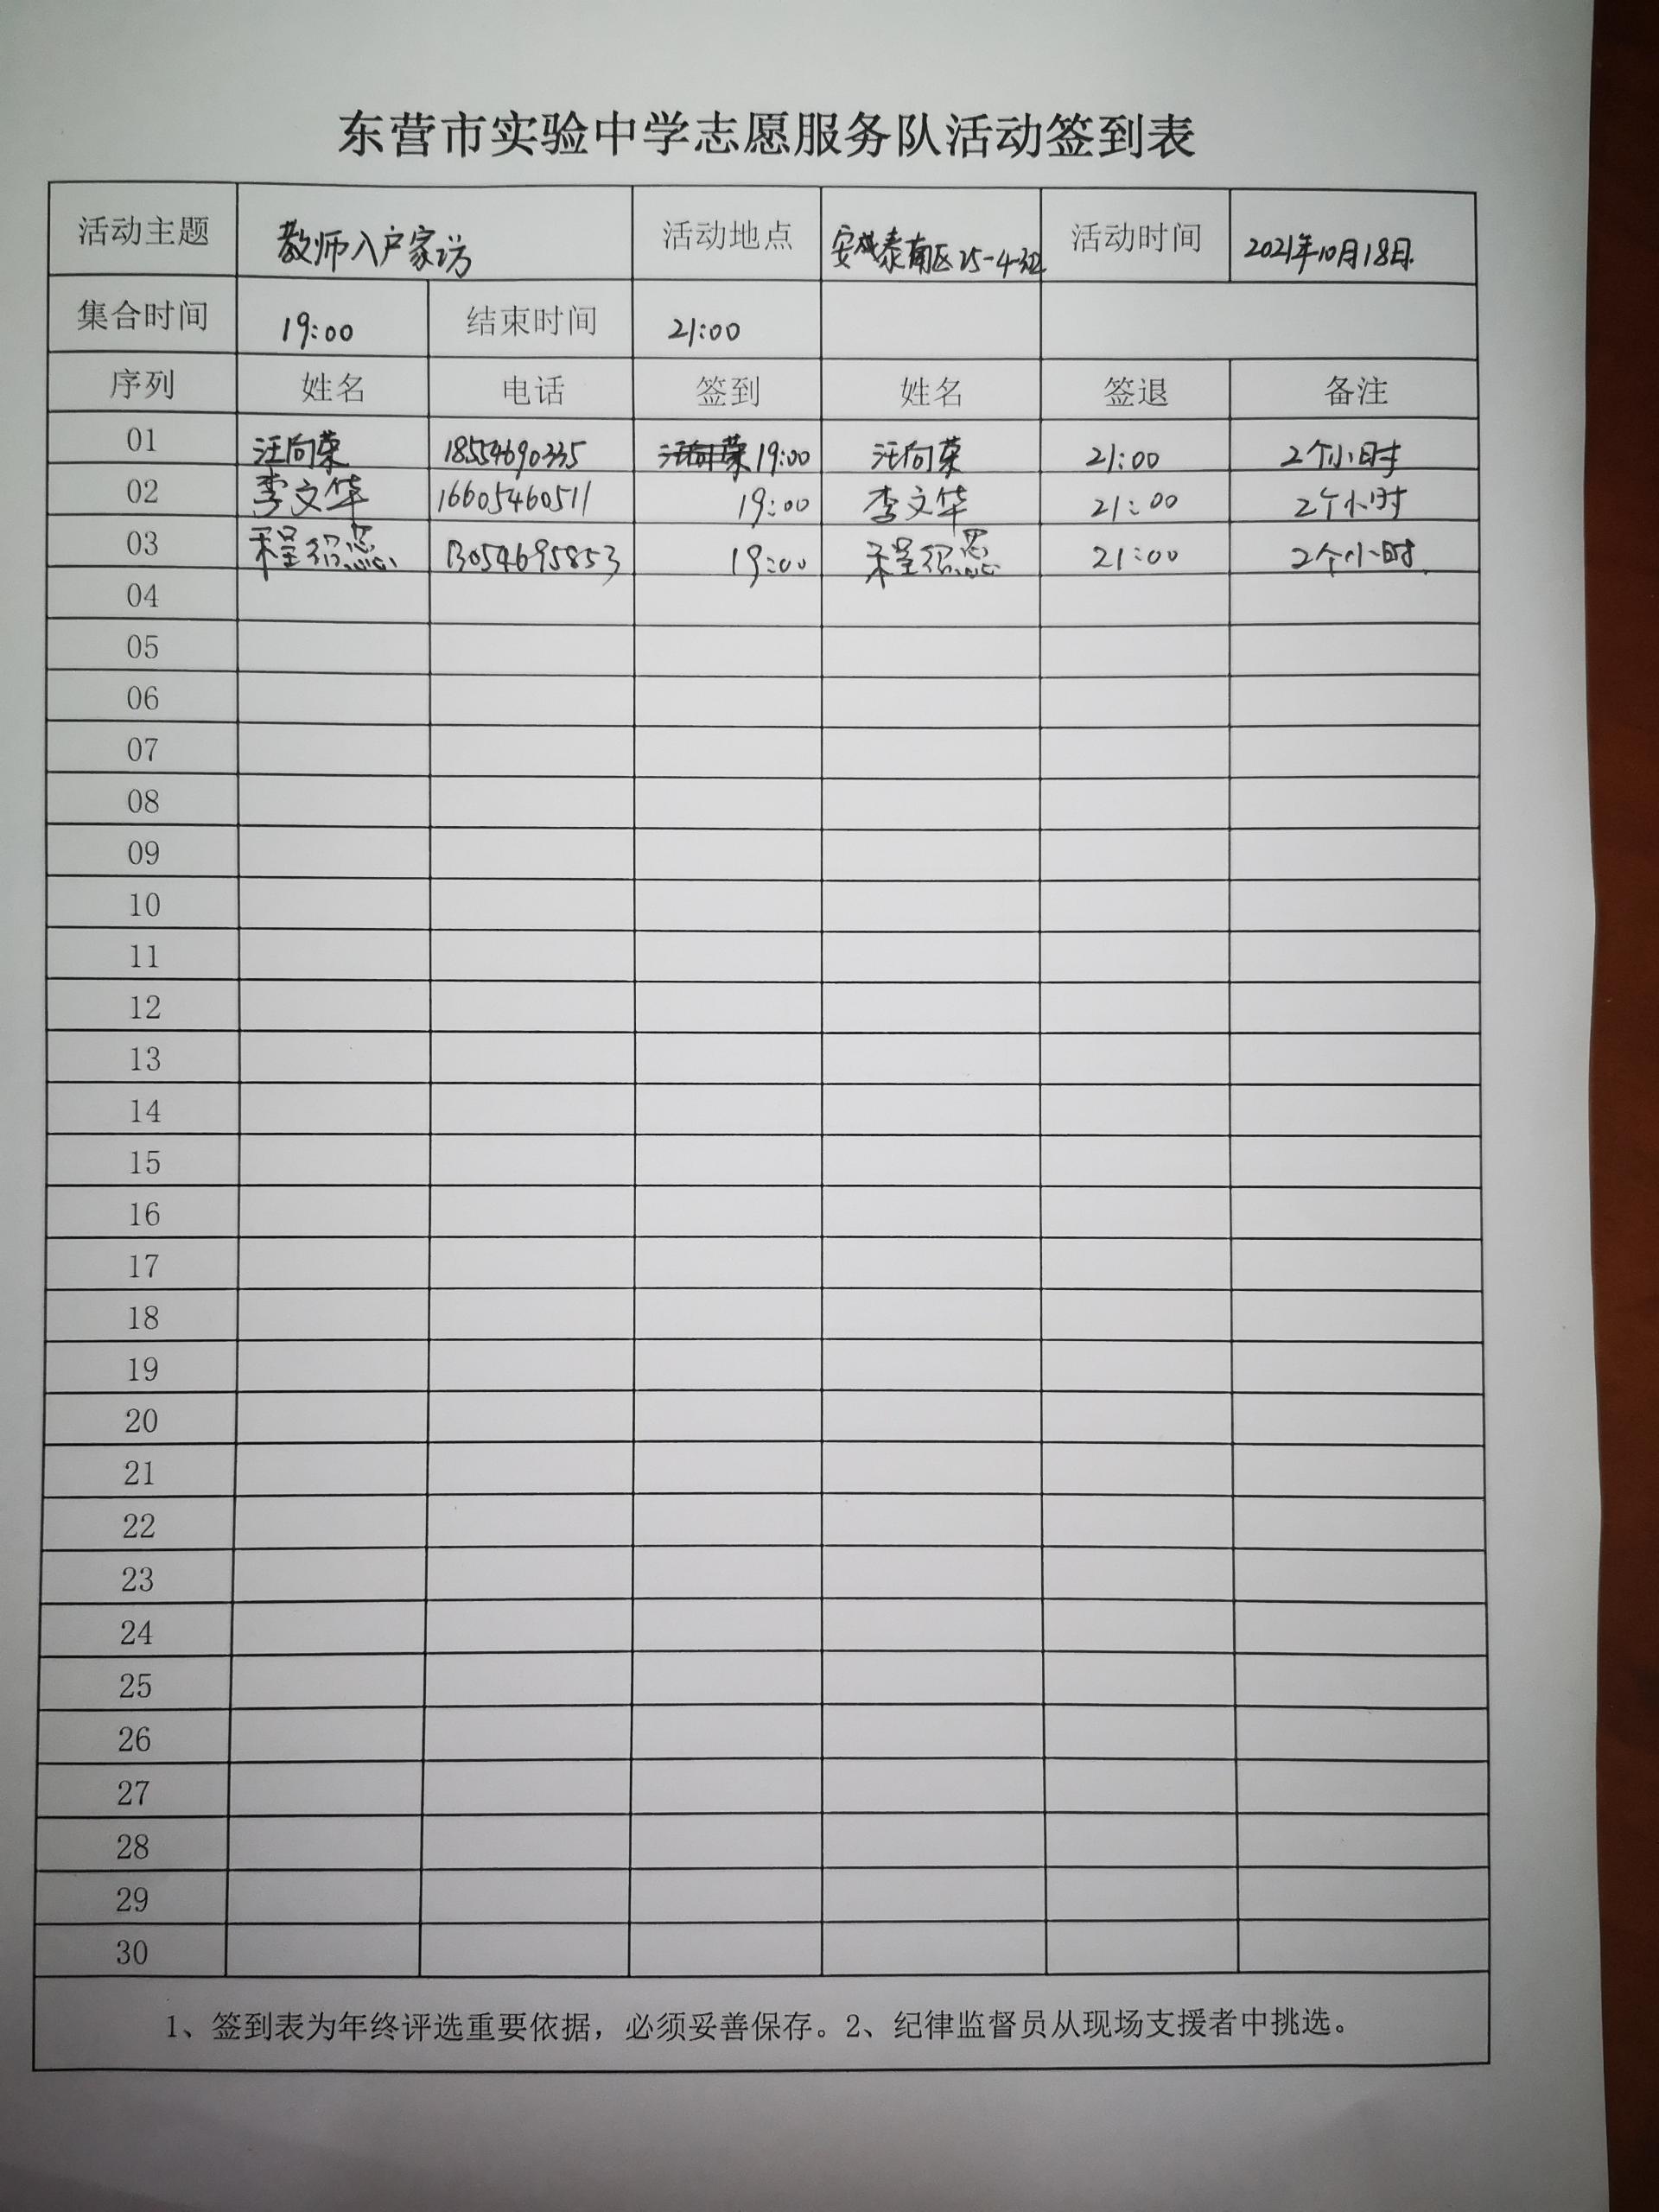 东营市实验中学志愿服务队活动签到表
活动主题 教师入户家访 活动地点 安泰南区25-4-302 活动时间 2021年10月18日.
集合时间 19:00 结束时间 21:00
序列 姓名 电话 签到 姓名 签退 备注
01 汪向荣 18554690335 19:00 汪向荣 21:00 2个小时
02 李文华 16605460511 19:00 李文华 21:00 2个小时
03 程绍 13054695853 19:00 程绍 21:00 2个小时.
04
05
06
07
08
09
10
11
12
13
14
15
16
17
18
19
20
21
22
23
24
25
26
27
28
29
30
1、签到表为年终评选重要依据，必须妥善保存。2、纪律监督员从现场支援者中挑选。